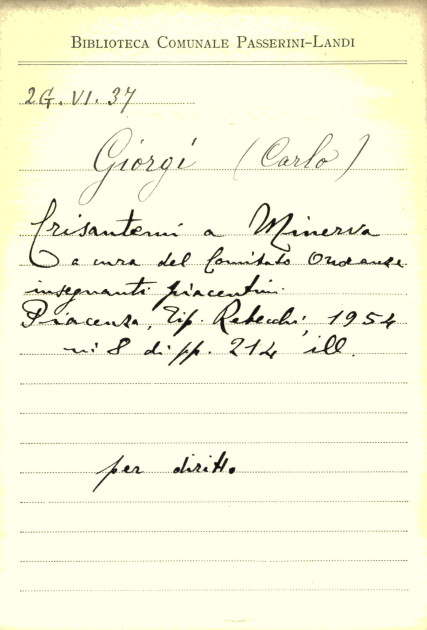 BIBLIOTECA COMUNALE PASSERINI-LANDI
2G. VI. 37
Giorgi (Carlo)
Crisantemi a Minerva
a cura del Comitato Onoranze
insegnanti piacentini.
Piacenza, Tip. Rebecchi, 1954
in 8 di pp. 214 ill.
per diritto